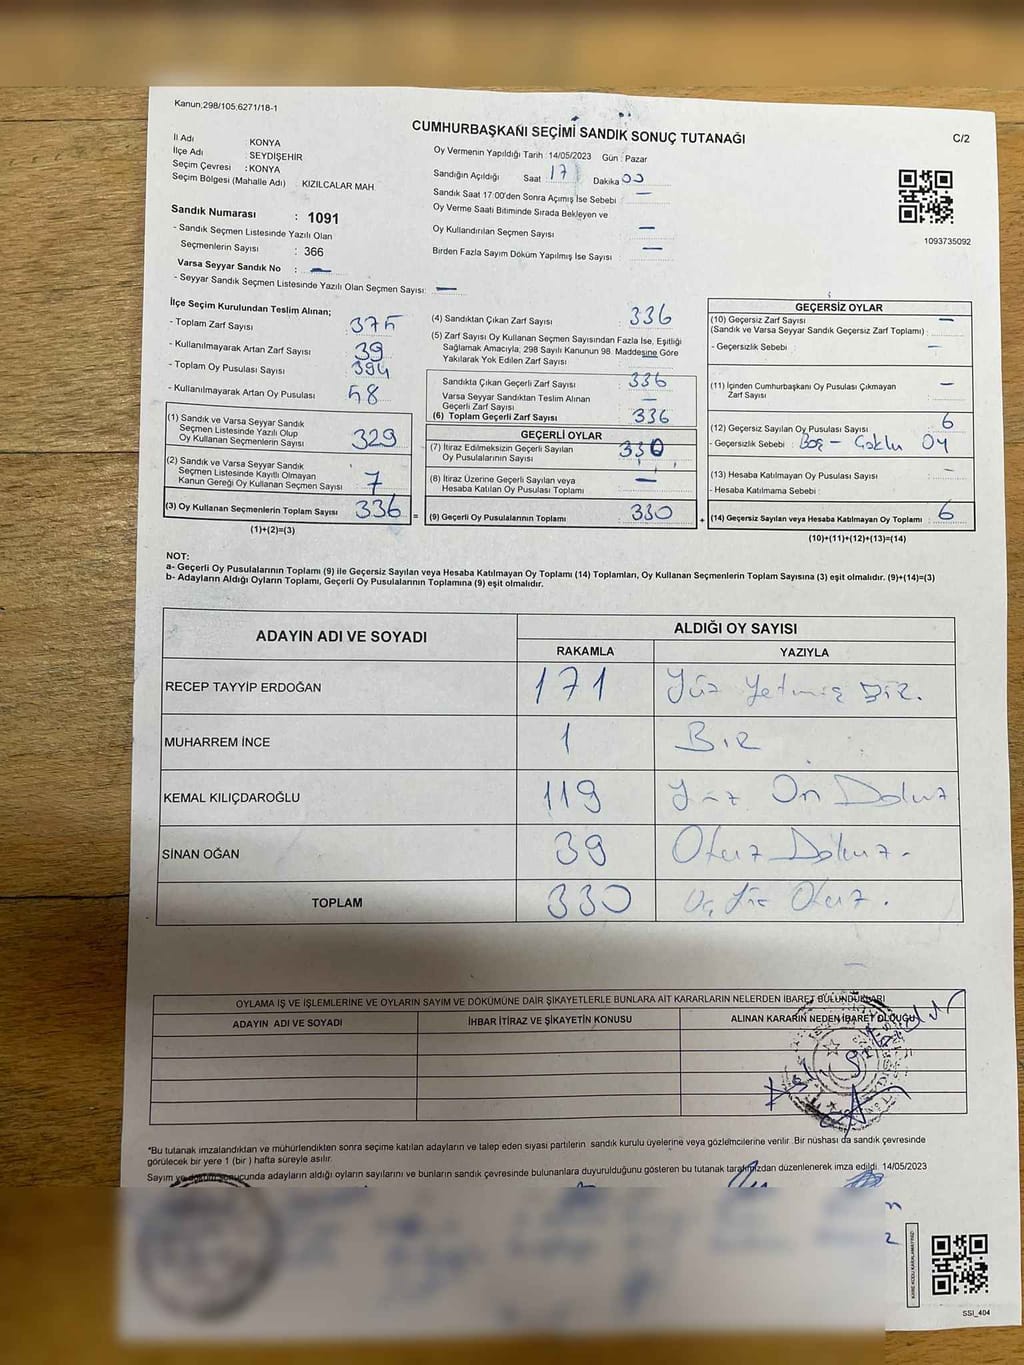 Kanun;298/105,6271/18-1
CUMHURBAŞKANI SEÇİMİ SANDIK SONUÇ TUTANAĞI
C/2
İl Adı : KONYA
İlçe Adı : SEYDİŞEHİR
Seçim Çevresi : KONYA
Seçim Bölgesi (Mahalle Adı) : KIZILCALAR MAH.
Sandık Numarası : 1091
- Sandık Seçmen Listesinde Yazılı Olan
Seçmenlerin Sayısı : 366
Varsa Seyyar Sandık No : —
- Seyyar Sandık Seçmen Listesinde Yazılı Olan Seçmen Sayısı: —
Oy Vermenin Yapıldığı Tarih :14/05/2023 Gün : Pazar
Sandığın Açıldığı Saat 17 Dakika 00
Sandık Saat 17:00'den Sonra Açımış İse Sebebi : —
Oy Verme Saati Bitiminde Sırada Bekleyen ve
Oy Kullandırılan Seçmen Sayısı : —
Birden Fazla Sayım Döküm Yapılmış İse Sayısı : —
1093735092
İlçe Seçim Kurulundan Teslim Alınan;
- Toplam Zarf Sayısı : 375
- Kullanılmayarak Artan Zarf Sayısı : 39
- Toplam Oy Pusulası Sayısı : 394
- Kullanılmayarak Artan Oy Pusulası : 58
(1) Sandık ve Varsa Seyyar Sandık
Seçmen Listesinde Yazılı Olup
Oy Kullanan Seçmenlerin Sayısı : 329
(2) Sandık ve Varsa Seyyar Sandık
Seçmen Listesinde Kayıtlı Olmayan
Kanun Gereği Oy Kullanan Seçmen Sayısı : 7
(3) Oy Kullanan Seçmenlerin Toplam Sayısı : 336
(1)+(2)=(3)
(4) Sandıktan Çıkan Zarf Sayısı : 336
(5) Zarf Sayısı Oy Kullanan Seçmen Sayısından Fazla İse, Eşitliği
Sağlamak Amacıyla, 298 Sayılı Kanunun 98. Maddesine Göre
Yakılarak Yok Edilen Zarf Sayısı :
Sandıkta Çıkan Geçerli Zarf Sayısı : 336
Varsa Seyyar Sandıktan Teslim Alınan
Geçerli Zarf Sayısı : —
(6) Toplam Geçerli Zarf Sayısı : 336
GEÇERLİ OYLAR
(7) İtiraz Edilmeksizin Geçerli Sayılan
Oy Pusulalarının Sayısı : 330
(8) İtiraz Üzerine Geçerli Sayılan veya
Hesaba Katılan Oy Pusulası Toplamı : —
= (9) Geçerli Oy Pusulalarının Toplamı : 330
GEÇERSİZ OYLAR
(10) Geçersiz Zarf Sayısı : —
(Sandık ve Varsa Seyyar Sandık Geçersiz Zarf Toplamı) :
- Geçersizlik Sebebi : —
(11) İçinden Cumhurbaşkanı Oy Pusulası Çıkmayan
Zarf Sayısı : —
(12) Geçersiz Sayılan Oy Pusulası Sayısı : 6
- Geçersizlik Sebebi : Boş - Çoklu Oy
(13) Hesaba Katılmayan Oy Pusulası Sayısı : —
- Hesaba Katılmama Sebebi :
+ (14) Geçersiz Sayılan veya Hesaba Katılmayan Oy Toplamı : 6
(10)+(11)+(12)+(13)=(14)
NOT:
a- Geçerli Oy Pusulalarının Toplamı (9) ile Geçersiz Sayılan veya Hesaba Katılmayan Oy Toplamı (14) Toplamları, Oy Kullanan Seçmenlerin Toplam Sayısına (3) eşit olmalıdır. (9)+(14)=(3)
b- Adayların Aldığı Oyların Toplamı, Geçerli Oy Pusulalarının Toplamına (9) eşit olmalıdır.
ADAYIN ADI VE SOYADI
ALDIĞI OY SAYISI
RAKAMLA YAZIYLA
RECEP TAYYİP ERDOĞAN 171 Yüz Yetmiş Bir.
MUHARREM İNCE 1 Bir
KEMAL KILIÇDAROĞLU 119 Yüz On Dokuz
SİNAN OĞAN 39 Otuz Dokuz.
TOPLAM 330 Üç Yüz Otuz.
OYLAMA İŞ VE İŞLEMLERİNE VE OYLARIN SAYIM VE DÖKÜMÜNE DAİR ŞİKAYETLERLE BUNLARA AİT KARARLARIN NELERDEN İBARET BULUNDUKLARI
ADAYIN ADI VE SOYADI
İHBAR İTİRAZ VE ŞİKAYETİN KONUSU
ALINAN KARARIN NEDEN İBARET OLDUĞU
*Bu tutanak imzalandıktan ve mühürlendikten sonra seçime katılan adayların ve talep eden siyasi partilerin sandık kurulu üyelerine veya gözlemcilerine verilir .Bir nüshası da sandık çevresinde
görülecek bir yere 1 (bir ) hafta süreyle asılır.
Sayım ve döküm sonucunda adayların aldığı oyların sayılarını ve bunların sandık çevresinde bulunanlara duyurulduğunu gösteren bu tutanak tarafımızdan düzenlenerek imza edildi. 14/05/2023
SSI_404